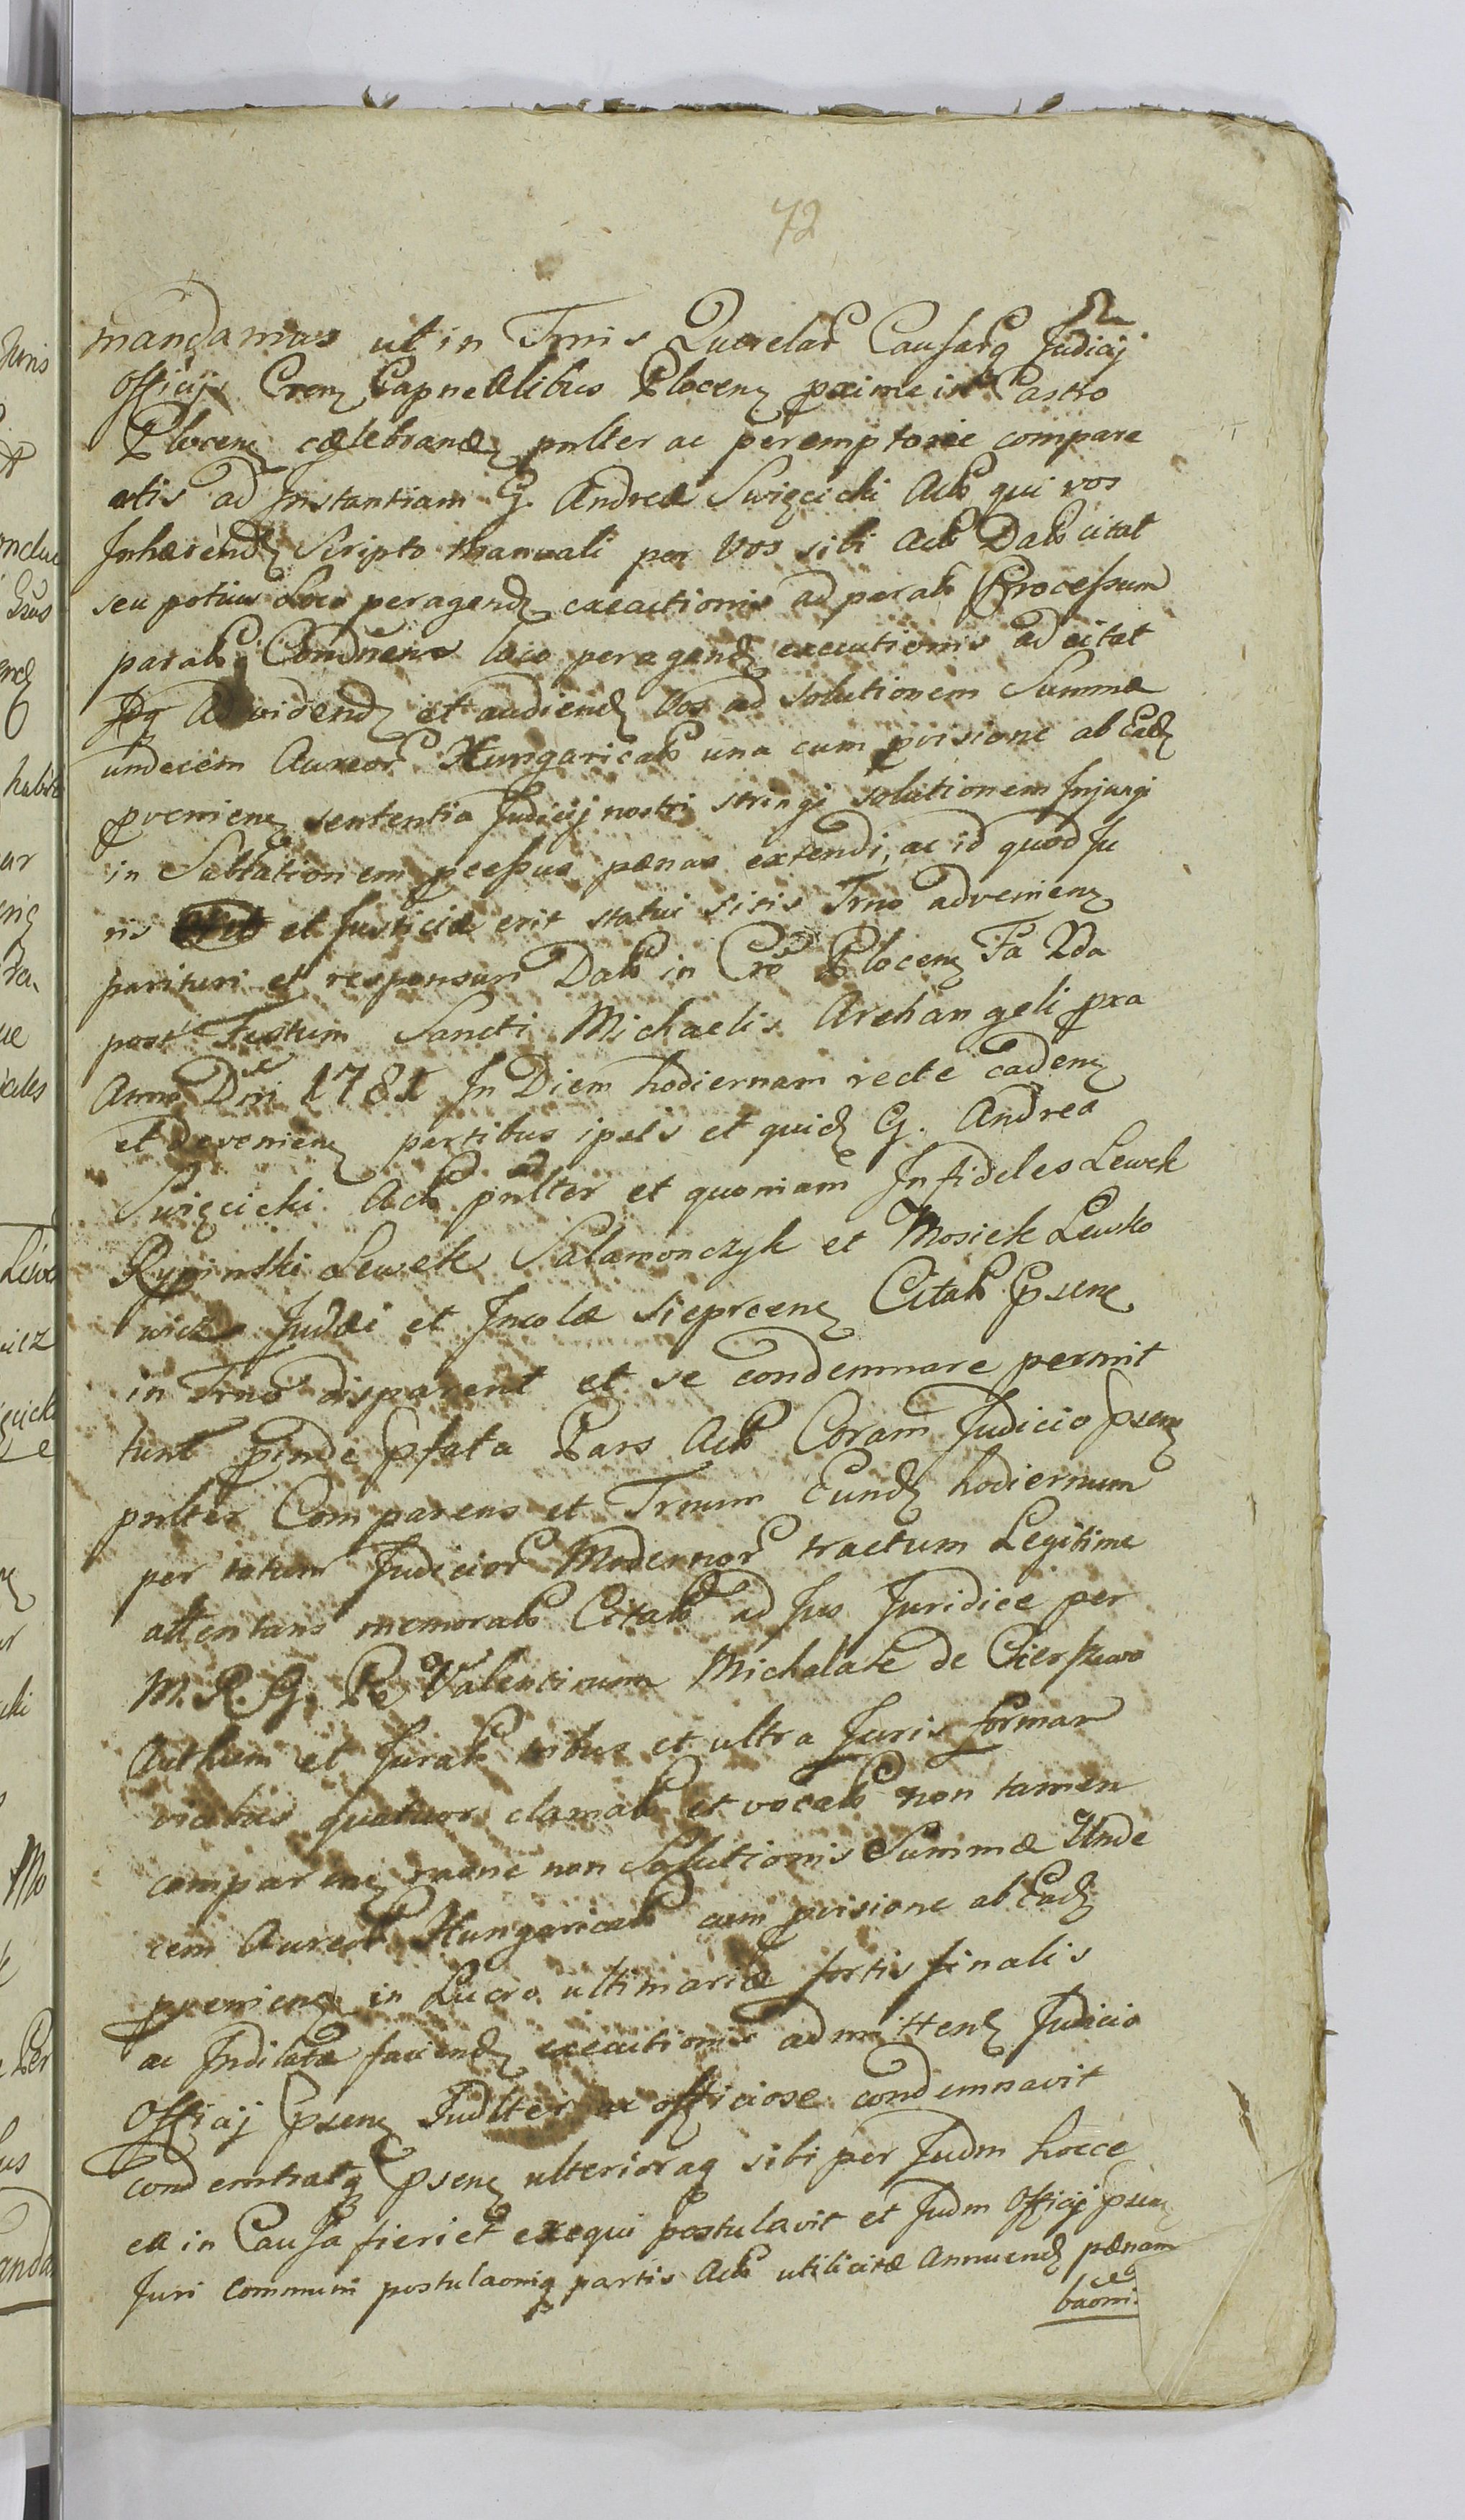 72
mandamus ut in Trnis Querelar Causarq Judicij
Officij Cren Capnealibus Plocen pxime in Castro
Plocen cœlebrand pnlter ac peremptorie compare
atis ad Instantiam G. Andreæ Swięcicki Acto qui vos
Inhærend Scripto Manuali per Vos sibi Acto Dato citat
seu potius Loco peragend exeactionis ad parato Processum
parato Condnens loco peragend executionis ad citat
Idq Ad vidend et audiend Vos ad solutionem Summæ
undecim Aureor Hungaricalo una cum pvisione ab Ead
pveniene sententia Judicij nostri stringi solutionem Injungi
in Sablationem pcessus pænas extendi, ac id quod Ju
ris et Justiciæ erit statui sitis Trno advenien
parituri et responsuri Dato in Cro Plocen Fa 2da
post Festum Sancti Michaelis Archangeli pxa
Anno Dni 1781 In Diem hodiernam recte caden
et devenien partibus ipsis et quid G. Andrea
Swięcicki Acto pnlter et quoniam Infideles Lewek
Rypinski Lewek Salamonczyk et Mosiek Lewko
wicz Judæi et Incolæ Sieprcen Citato Psene
in Trno disparent et se condemnare permit
tunt pinde Pfata Pars Acto Coram Judicio Psen
pnlter Comparens et Trnum Eund hodiernum
per totum Judicior Modernor tractum Legitime
attentans memorato Citato ad Jus Juridice per
M. R. G. Pe Valentinum Michalak de Cierpkowo
Authum et Jurato tribus et ultra Juris formar
vicibus quatuor clamato et vocato non tamen
comparene raone non Solutionis Summæ Unde
cem Aureor Hungaricalo cum pvisione ab Ead
pveniene in Lucro ultimariæ sortis finalis
ac Indilatæ faciend exeactionis admittend Judicio
Officij Psene Judlter ac officiose condemnavit
condemnatq Psene ulterioraq sibi per Judm hocce
ea in Causa fieri et exequi postulavit et Judm Officij psen
Juri communi postulaoniq partis Acto utilicitæ Annuend pænam
baoni.